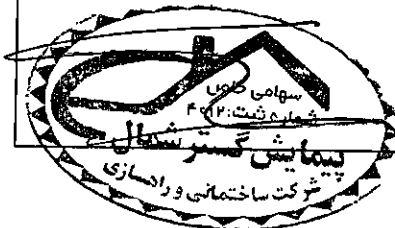 سهامی خاص
شماره ثبت: ۴۰۱۲
پیمایش گستر شمال
شرکت ساختمانی و راهسازی